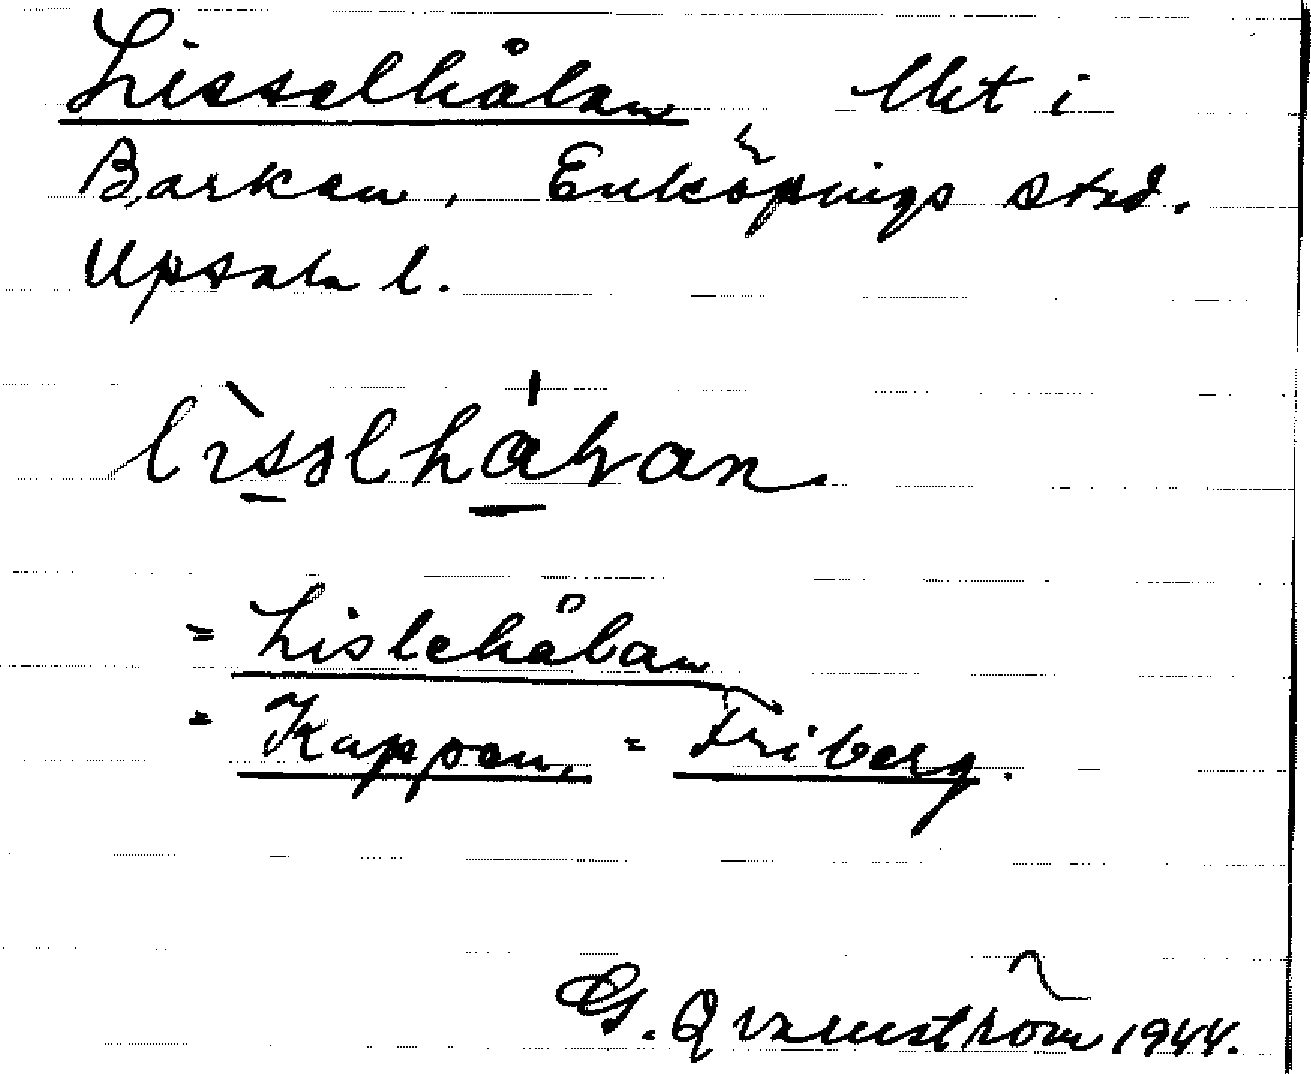 Lisselhålan lht i
Barkan, Enköpings stad.
Upsala l.
= Lislehålan
= Kappan, = Friberg.
G. Qvarnström 1944.